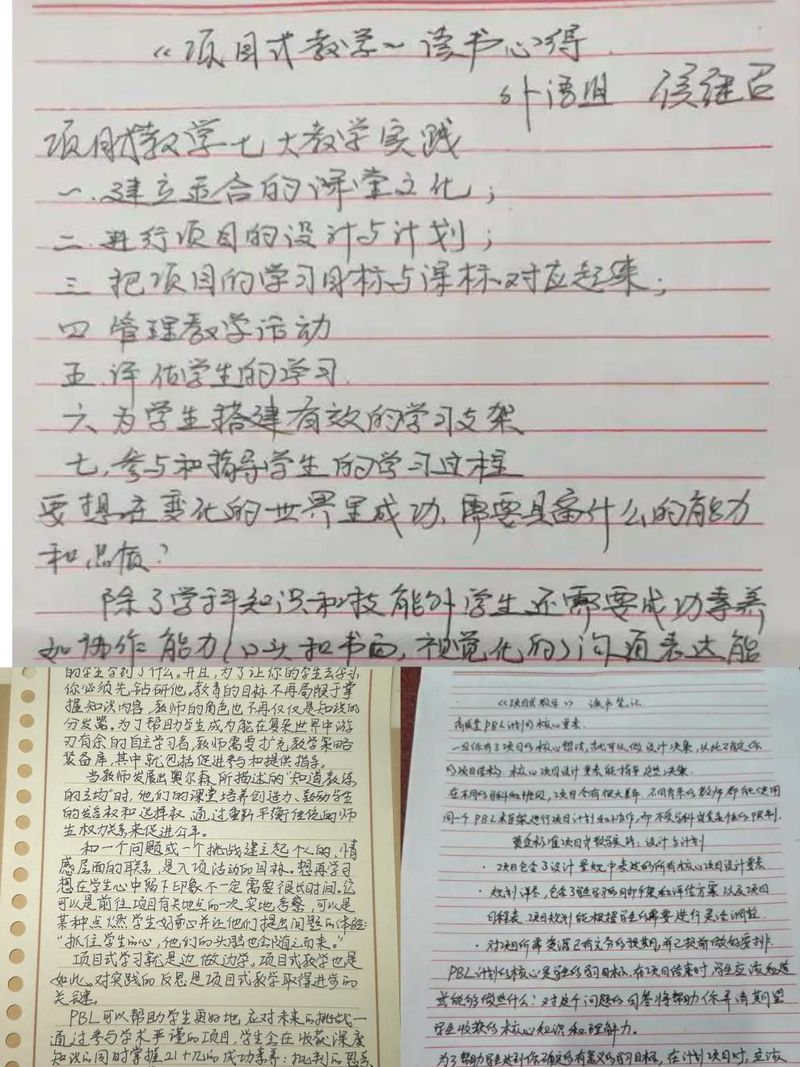 《项目式教学》读书心得
外语组 侯继召
项目式教学七大教学实践
一.建立适合的课堂文化；
二.进行项目的设计与计划；
三.把项目的学习目标与课标对应起来；
四 管理教学活动
五.评估学生的学习.
六 为学生搭建有效的学习支架
七.参与和指导学生的学习过程
要想在变化的世界里成功,需要具备什么的能力
和品质?
除了学科知识和技能外学生还需要成功素养
如协作能力(口头和书面,视觉化的)沟通表达能
的学生学到了什么。并且,为了让你的学生去学习,
你必须先钻研他。教育的目标不再局限于掌
握知识内容,教师的角色也不再仅仅是知识的
分发器。为了帮助学生成为能在复杂世界中游
刃有余的自主学习者,教师需要扩充教学策略
装备库,其中就包括促进参与和提供指导。
当教师发展出奥尔森所描述的“知道教练
的主场”时,他们的课堂培养创造力、鼓动学生
的发言权和选择权,通过重新平衡传统的师
生权力关系来促进公平。
和一个问题或一个挑战建立起个人的、情
感层面的联系,是入项活动的目标。想再学习
想在学生心中留下印象不一定需要很长时间。它
可以是前往项目有关地点的一次实地考察,可以是
某种点燃学生好奇心并让他们提出问题的体验:
“抓住学生的心,他们的头脑也会随之而来。”
项目式学习就是边做边学。项目式教学也是
如此。对实践的反思是项目式教学取得进步的
关键。
PBL可以帮助学生更好地应对未来的挑战—
通过参与学术严谨的项目,学生会在收获深度
知识的同时掌握21世纪的成功素养:批判的思考
《项目式教学》 读书笔记
高质量PBL计划的核心要素
一旦你有了项目的核心想法,就可以做设计决策,从而确定你
的项目结构。核心项目设计要素能指导这些决策.
在不同的学科和班级,项目会有很大差异.不同背景的教师都能使用
同一个PBL框架进行项目计划和协作,却不受学科或条件的限制.
黄金标准项目式教学实践:设计与计划
·项目包含了设计量规中表述的所有核心项目设计要素
·规划详尽,包含了学生学习的脚手架和评估方案以及项目
日程表.项目规划能根据学生的需要进行灵活调整.
·对项目所需资源已有充分的预期,并已提前做好安排.
PBL计划的核心是学生的学习目标.在项目结束时学生应该知道
或能够做些什么?对这个问题的回答将帮助你弄清期望
学生收获的核心知识和理解力.
为了帮助学生达到你确定的有意义的学习目标,在计划项目时,应该